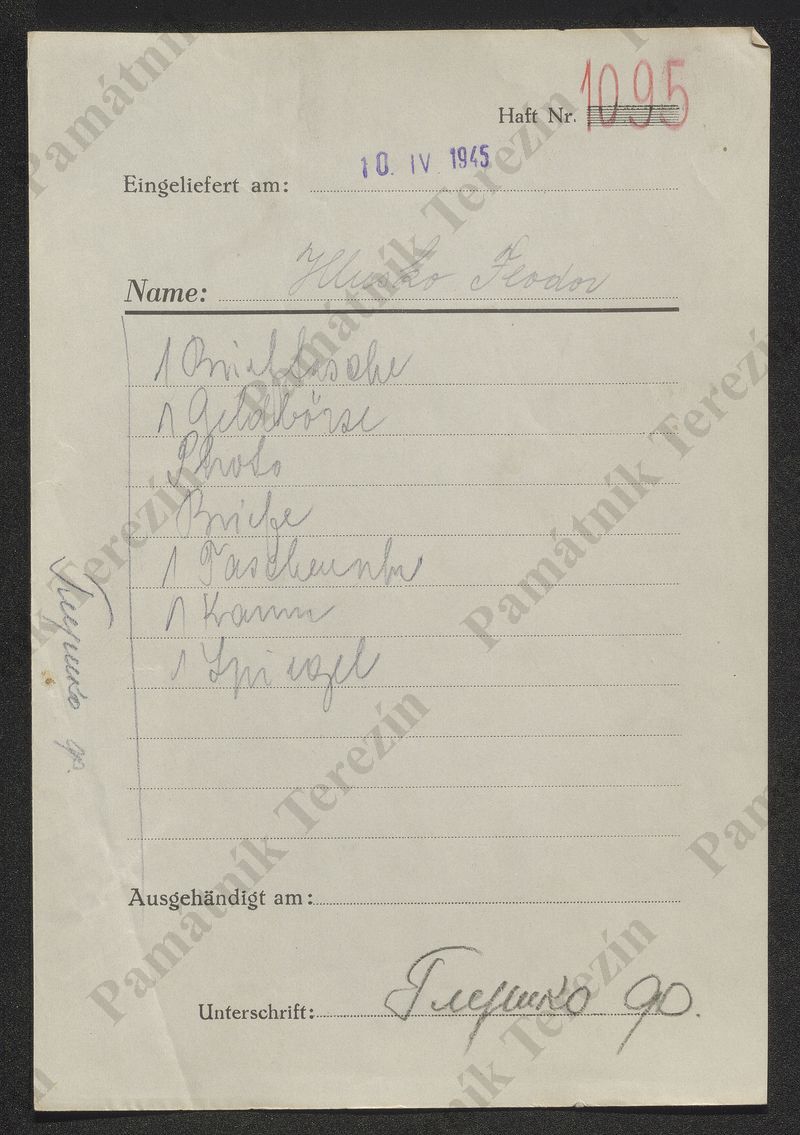 Haft Nr. 1095
10. IV 1945
Eingeliefert am:
Name: Hlusko Feodor
1 Brieftasche
1 Geldbörse
Photo
Briefe
1 Taschenuhr
1 Kamm
1 Spiegel
Ausgehändigt am:
Unterschrift:
Památník Terezín